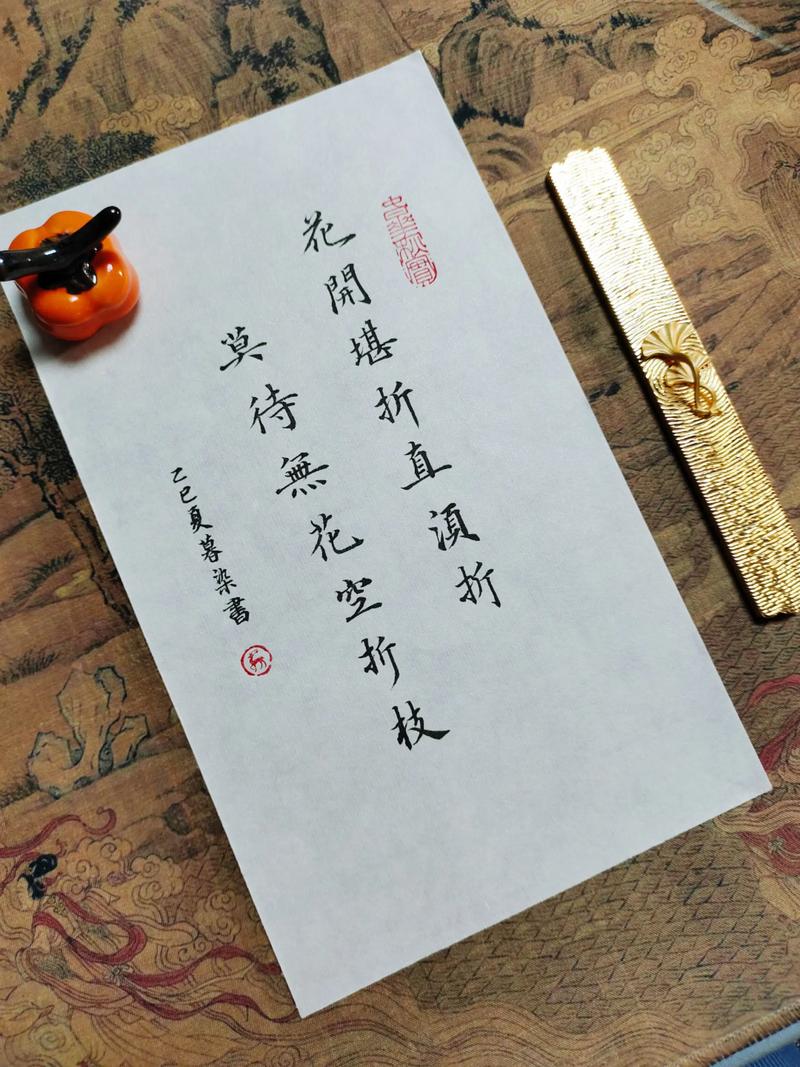 花開堪折直須折
莫待無花空折枝
乙巳夏暮染書